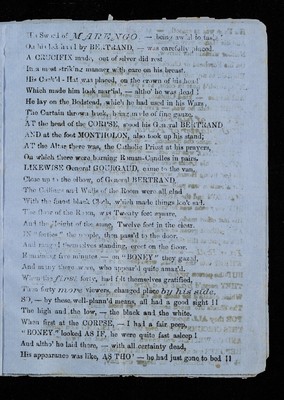 His Sword of MARENGO — being
On his left hand by BERTRAND, — was carefully placed
A CRUCIFIX made, out of silver did rest
In a most striking manner with care on his breast,
His Cock'd-Hat was placed, on the crown of his head
Which made him look martial, — altho' he was dead!
He lay on the Bedstead, which he had used in his Wars,
The Curtain thrown back, being made of fine gauze,
AT the head of the CORPSE, stood his General BERTRAND
AND at the foot MONTHOLON, also took up his stand;
AT the Altar there was, the Catholic Priest at his prayers,
On which there were burning Roman-Candles in pairs,
LIKEWISE General GOURGAUD, came to the van,
Close up to the elbow, of General BERTRAND,
The Ceilings and Walls of the Room were all clad
With the finest black Cloth, which made things look sad.
The floor of the Room, was Twenty feet square,
And the Height of the same, Twelve feet in the clear.
IN the people, then pass'd to the door
And themselves standing, erect on the floor.
Remaining five minutes — on "BONEY" they gazed,
And many there were, who appear'd quite amaz'd.
When the FIRST forty, had felt themselves gratified,
Then forty more viewers, changed place by his side.
SO, — by these well-plann'd means, all had a good sight!!
The high and the low, — the black and the white.
When first at the CORPSE, — I had a fair peep,
"BONEY" looked AS IF, he were quite fast asleep!
And altho' he laid there, — with all certainty dead,
His appearance was like, AS THO' — he had just gone to bed!!